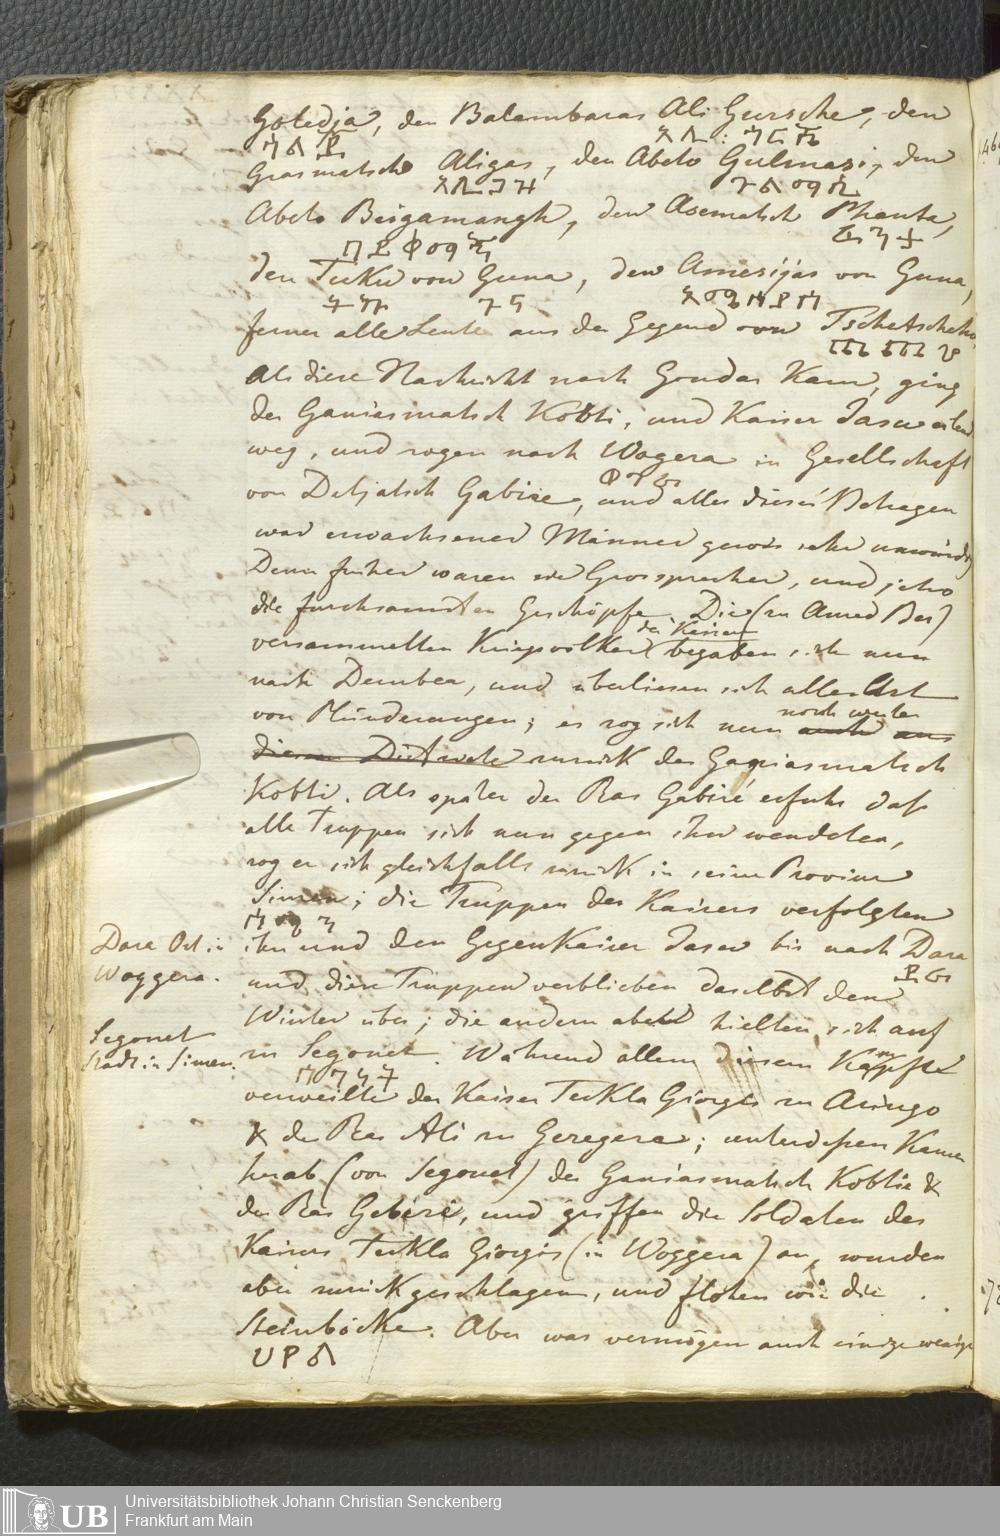 Goledja, den Balambaras Ali Gursche, den
Grasmatsch Aligas, den Abeto Gulmasi, den
Abeto Beigamangh, den Asematsch Phanta,
den Tuku von Guna, den Amerijas von Guna,
ferner alle Leute aus der Gegend von Tschetscheho.
Als diese Nachricht nach Gondar Kam, ging
der Ganiasmatsch Kobti, und Kaiser Jasu eilend
weg, und zogen nach Wogera in Gesellschaft
von Detjatsch Gabire, und alles dieses Betragen
war erwachsener Männer gewis sehr unwürdig
Denn früher waren sie Grossprecher, und jetzo
die furchsamsten Geschöpfe. Die (zu Amed Ber)
der Kaiser
versammelten Kriegsvölker begaben sich nun
nach Dembea, und überliesen sich aller Art
noch weiter
von Plünderungen; es zog sich nun
zurück der Ganiasmatsch
Kobti. Als später der Ras Gabiré erfuhr daß
alle Truppen sich nun gegen ihn wendeten,
zog er sich gleichfalls zurück in seine Provinz
Simen; die Truppen des Kaisers verfolgten
ihn und den GegenKaiser Jasu bis nach Dara
Dara Ort in
Woggera.
und diese Truppen verblieben daselbst den
Winter über; die andern aber hielten sich auf
Segonet
Stadt in Simen.
zu Segonet. Während allem diesem Kämpfe
verweilte der Kaiser Tekla Giorgis zu Aringo
& der Ras Ali zu Geregera; unterdessen Kamen
herab (von Segonet) der Ganiasmatsch Koblie &
der Ras Gebiré, und griffen die Soldaten des
Kaisers Tekla Giorgis (in Woggera) an, wurden
aber zurückgeschlagen, und flohen wie die
Steinböcke. Aber was vermögen auch einige wenige
UB Universitätsbibliothek Johann Christian Senckenberg
Frankfurt am Main